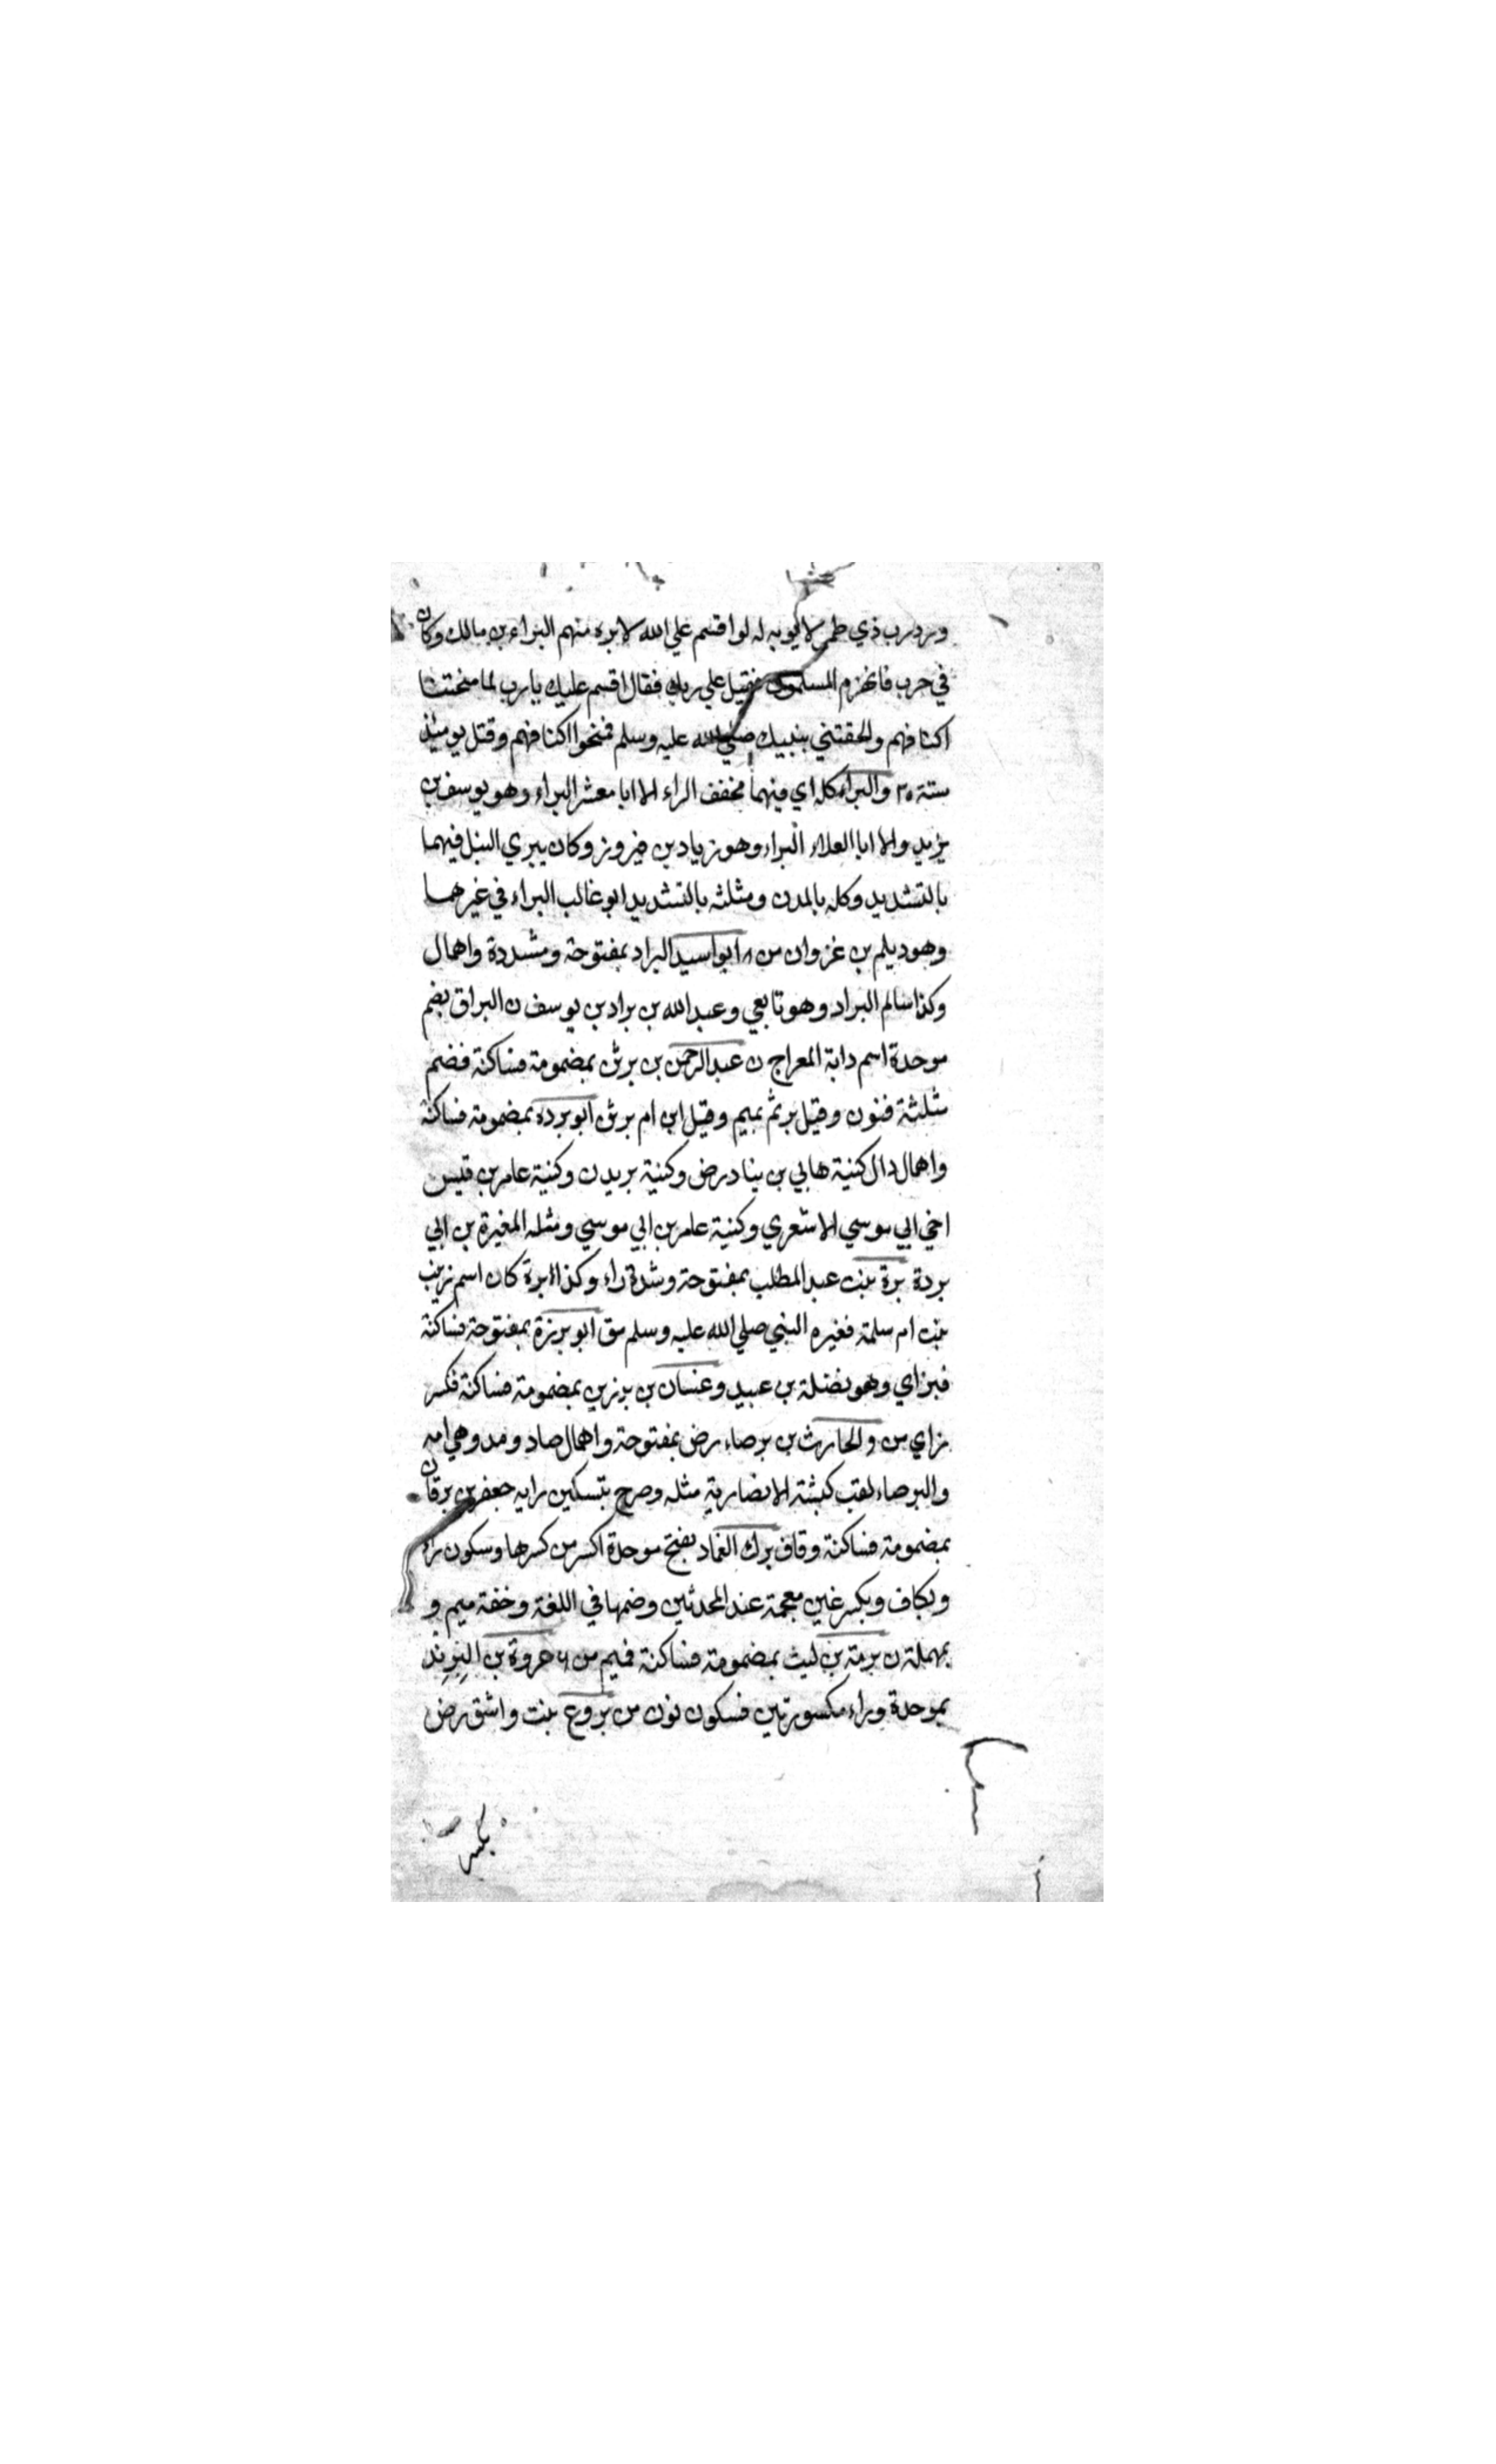 ورد رب ذي طمر لا يوبه له لو اقسم علي الله لابره منهم البراء بن مالك وكان
في حرب فانهزم المسلمون فقيل علي ربك فقال اقسم عليك يا رب لما منحتنا
اكتافهم والحقتني بنبيك صلي الله عليه وسلم فمنحوا اكتافهم وقتل يومئذ
سنة ٢٠ والبراء كله اي فيهما مخفف الراء الا ابا معشر البراء وهو يوسف بن
يزيد والا ابا العلاء البراء وهو زياد بن فيروز وكان يبري النبل فيهما
بالتشديد وكله بالمد ن ومثلثه بالتشديد ابو غالب البراء في غيرهما
وهو ديلم بن غزوان من ٨ ابو اسيد البراد بمفتوحة ومشددة واهمال
وكذا سالم البراد وهو تابعي وعبد الله بن براد بن يوسف ن البراق بضم
موحدة اسم دابة المعراج ن عبد الرحمن بن برثن بمضمومة فساكنة فضم
مثلثة فنون وقيل برثم بميم وقيل ابن ام برثن ابو برده بمضمومة فساكنة
واهمال دال كنية هاني بن نيار رض وكنية بريد ن وكنية عامر بن قيس
اخي ابي موسي الاشعري وكنية عامر بن ابي موسي ومثله المغيرة بن ابي
بردة برة بنت عبد المطلب بمفتوحة وشدة راء وكذا برة كان اسم زينب
بنت ام سلمة فغيره النبي صلي الله عليه وسلم مق ابو برزة بمفتوحة فساكنة
فبزاي وهو نضلة بن عبيد وغسان بن برزين بمضمومة فساكنة فكسر
زاي من والحارث بن برصاء رض بمفتوحة واهمال صاد ومد وهي امه
والبرصاء لقب كبشة الانصارية مثله وصرح بتسكين رايه جعفر بن برقان
بمضمومة فساكنة وقاف برك الغماد بفتح موحدة اكسر من كسرها وسكون راء
وبكاف وبكسر غين معجمة عند المحدثين وضمها في اللغة وخفة ميم و
بمهملة ن برمة بن ليث بمضمومة فساكنة فميم من ٤ عروة بن البرند
بموحدة وراء مكسورتين فسكون نون من بروع بنت واشق رض
بكسر